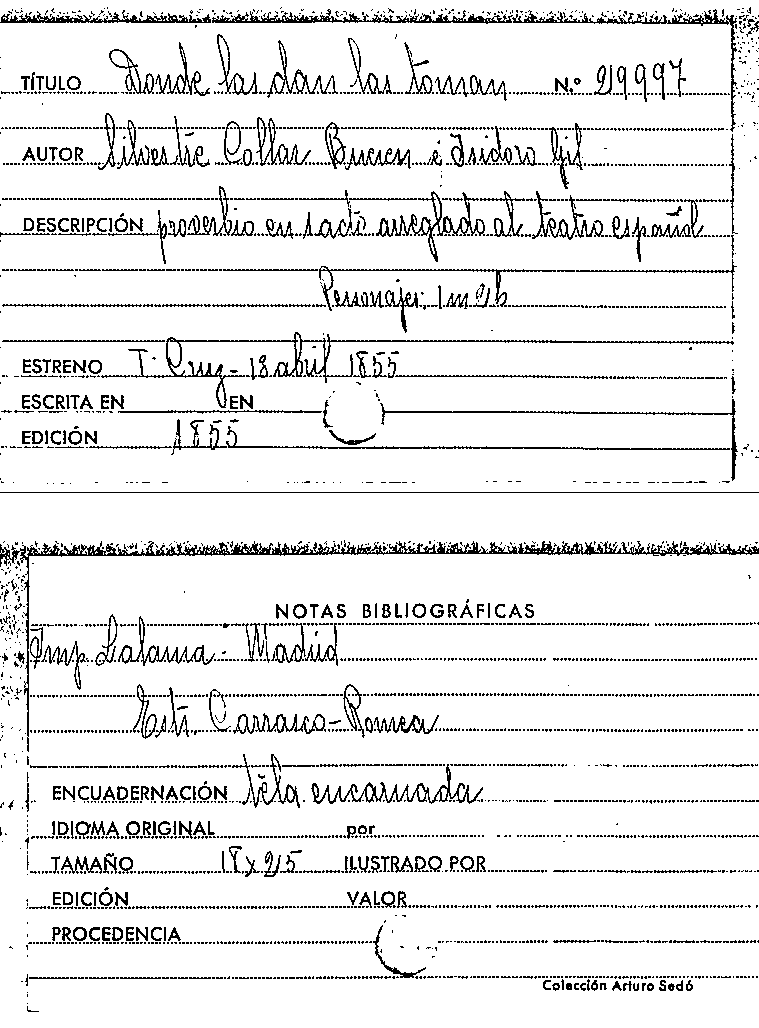 TÍTULO Donde las dan las toman N.º 29997
AUTOR Silvestre Collar Bueren é Isidoro Gil
DESCRIPCIÓN proverbio en 1 acto arreglado al teatro español
Personajes: 1 m 2 h
ESTRENO T. Cruz - 18 abril 1855
ESCRITA EN EN
EDICIÓN 1855
NOTAS BIBLIOGRÁFICAS
Imp. Lalama - Madrid
Estr. Carrasco - Romea
ENCUADERNACIÓN tela encarnada
IDIOMA ORIGINAL por
TAMAÑO 18 x 25 ILUSTRADO POR
EDICIÓN VALOR
PROCEDENCIA
Colección Arturo Sedó